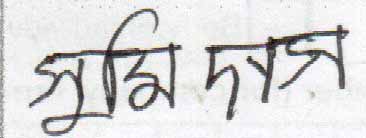 সুমি দাস